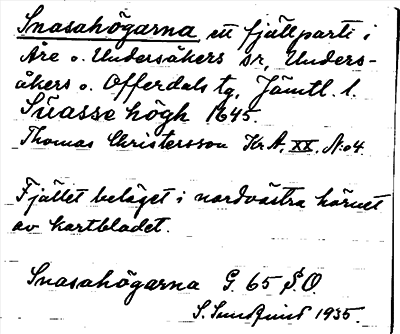 Snasahögarna, ett fjällparti i
Åre o. Undersåkers sr, Unders-
åkers o. Offerdals tg, Jämtl. l.
Suasse högh 1645.
Thomas Christersson Kr.A. XX. N:o4.
Fjället beläget i nordvästra hörnet
av kartbladet.
Snasahögarna G. 65 S.O
S. Sundqvist 1935.